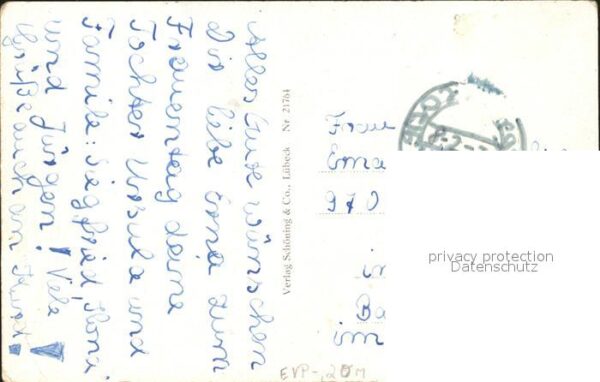 Alles Gute wünschen
dir liebe Erna zum
Frauentag deine
Tochter Ursula und
Familie: Siegfried, Ilona
und Jürgen! Viele
Grüße auch an Kurt!
Verlag Schöning & Co., Lübeck Nr. 21764
Frau
Erna
970
in
im
privacy protection
Datenschutz
EVP -,20 M